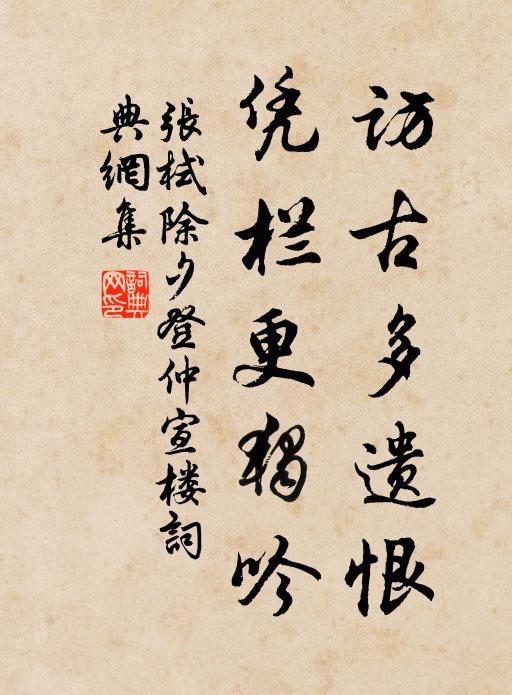 访古多遗恨
凭栏更独吟
張栻除夕登仲宣楼詞
典網集
詞典网印